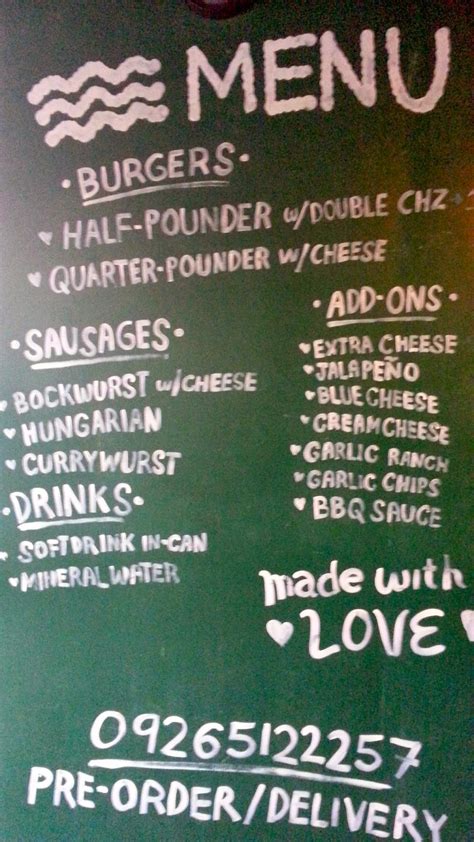 MENU
• BURGERS •
♥ HALF-POUNDER w/DOUBLE CHZ
♥ QUARTER-POUNDER w/CHEESE
• SAUSAGES •
BOCKWURST w/CHEESE
♥ HUNGARIAN
♥ CURRYWURST
• ADD-ONS •
♥ EXTRA CHEESE
♥ JALAPEÑO
♥ BLUE CHEESE
♥ CREAM CHEESE
♥ GARLIC RANCH
♥ GARLIC CHIPS
♥ BBQ SAUCE
• DRINKS •
SOFTDRINK IN-CAN
♥ MINERAL WATER
made with
♥ LOVE ♥
09265122257
PRE-ORDER/DELIVERY